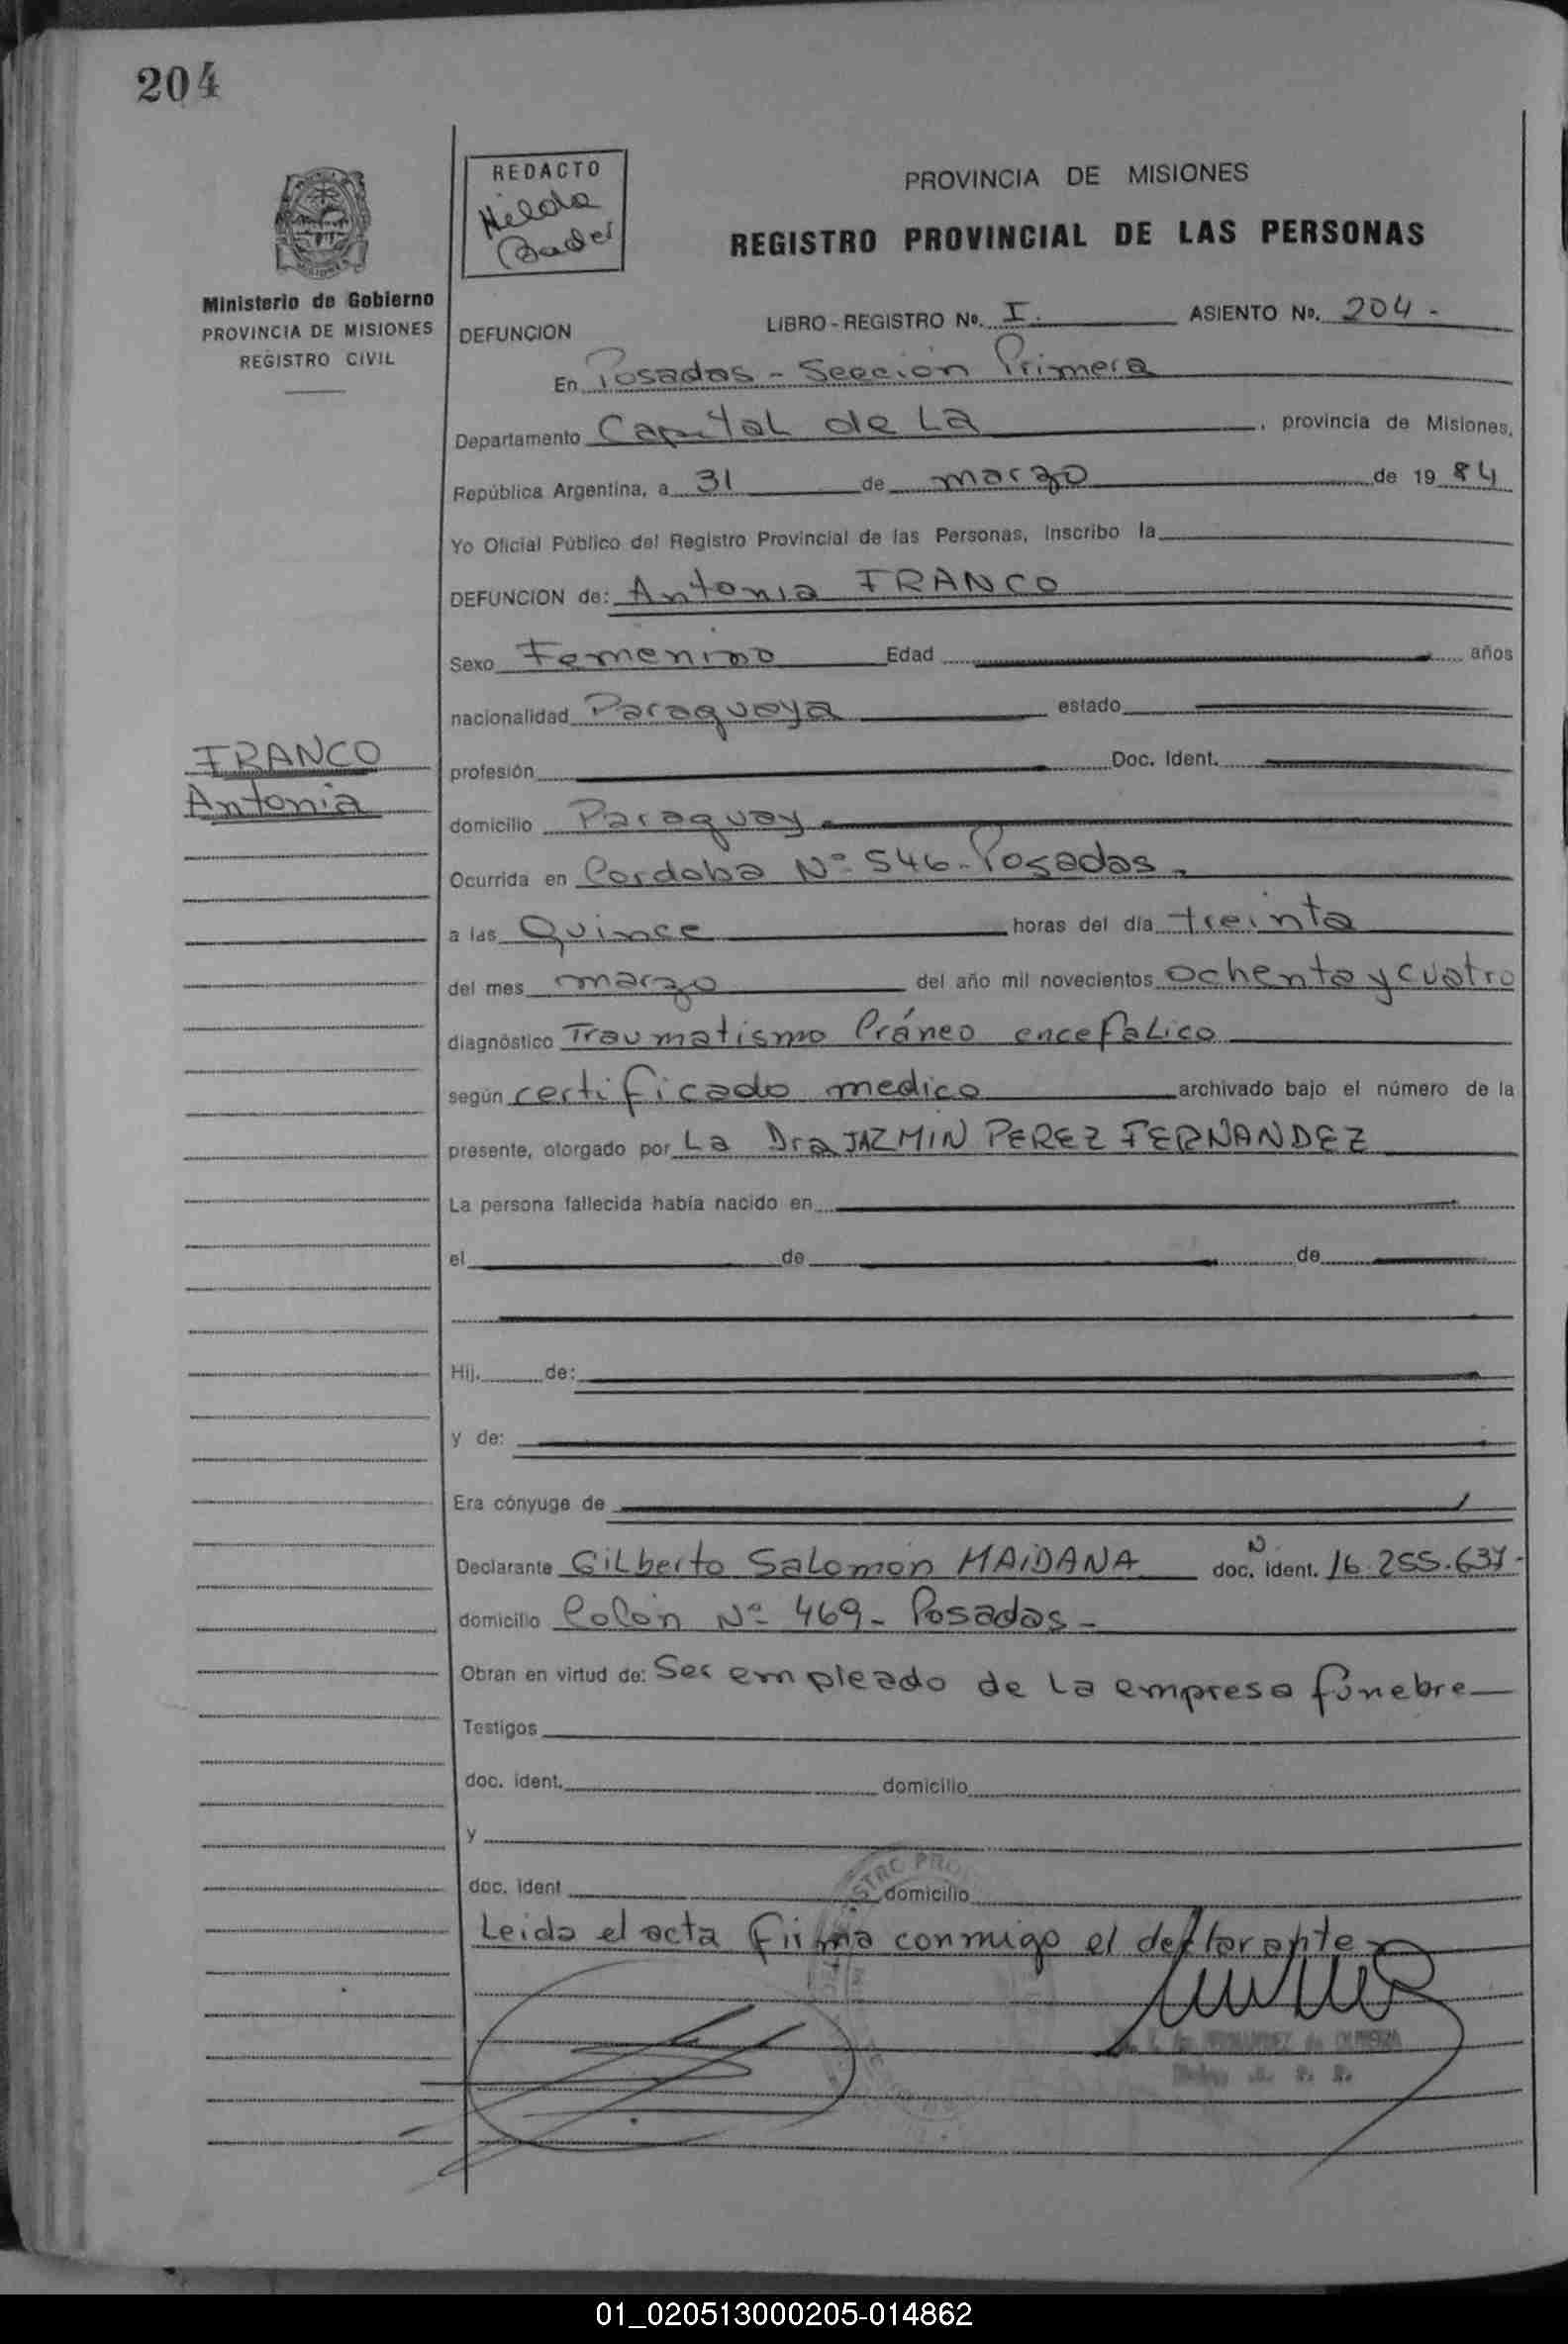 204
REDACTO
Hilda
Bader
Ministerio de Gobierno
PROVINCIA DE MISIONES
REGISTRO CIVIL
PROVINCIA DE MISIONES
REGISTRO PROVINCIAL DE LAS PERSONAS
DEFUNCION LIBRO-REGISTRO Nº. I. ASIENTO Nº. 204-
En Posadas - Sección Primera
Departamento Capital de La, provincia de Misiones,
República Argentina, a 31 de marzo de 1984
Yo Oficial Público del Registro Provincial de las Personas, inscribo la
DEFUNCION de: Antonia FRANCO
Sexo Femenino Edad años
nacionalidad Paraguaya estado
FRANCO
Antonia
profesión Doc. Ident.
domicilio Paraguay
Ocurrida en Cordoba Nº 546-Posadas.
a las Quince horas del día treinta
del mes marzo del año mil novecientos ochenta y cuatro
diagnóstico Traumatismo Cráneo encefalico
según certificado medico archivado bajo el número de la
presente, otorgado por La Dra JAZMIN PEREZ FERNANDEZ
La persona fallecida había nacido en
el de de
Hij. de:
y de:
Era cónyuge de
Declarante Gilberto Salomon MAIDANA doc. N ident. 16.255.637-
domicilio Colón Nº 469- Posadas-
Obran en virtud de: Ser empleado de la empresa fúnebre
Testigos
doc. ident. domicilio
y
doc. ident domicilio
Leida el acta firma conmigo el declarante
01_020513000205-014862